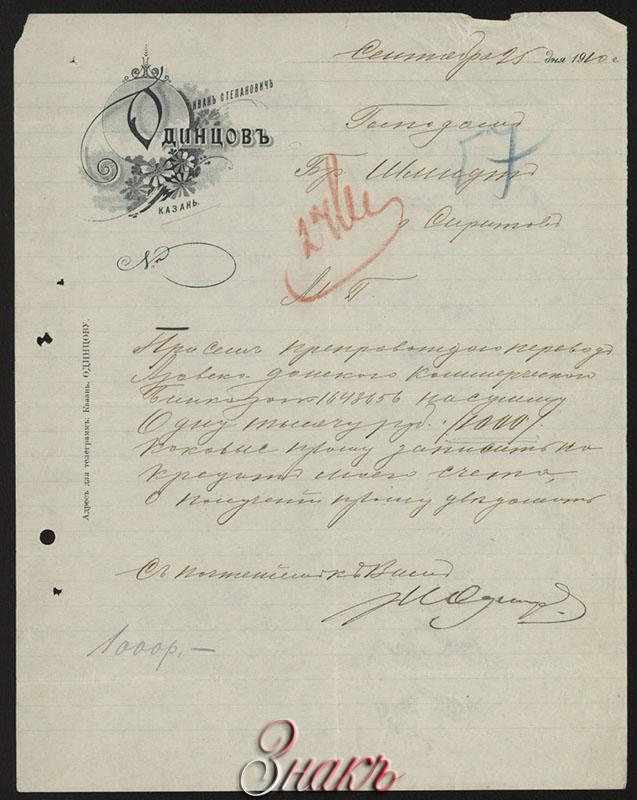 Сентября 25 дня 1910 г
Иванъ Степановичъ
Одинцовъ
Казань.
№
Господамъ
Бр Шмидтъ
57
Саратовъ
М Г.
При семъ препровождаю переводъ
Азовско донского Коммерческого
Банка за № 1648656 на сумму
Одну тысячу руб. /1000/
каковые прошу записать на
кредитъ моего счета,
о получении прошу уведомить
Съ почтениемъ къ Вамъ
И Одинцов
1000р.—
Адресъ для телеграммъ: Казань, ОДИНЦОВУ.
Знакъ